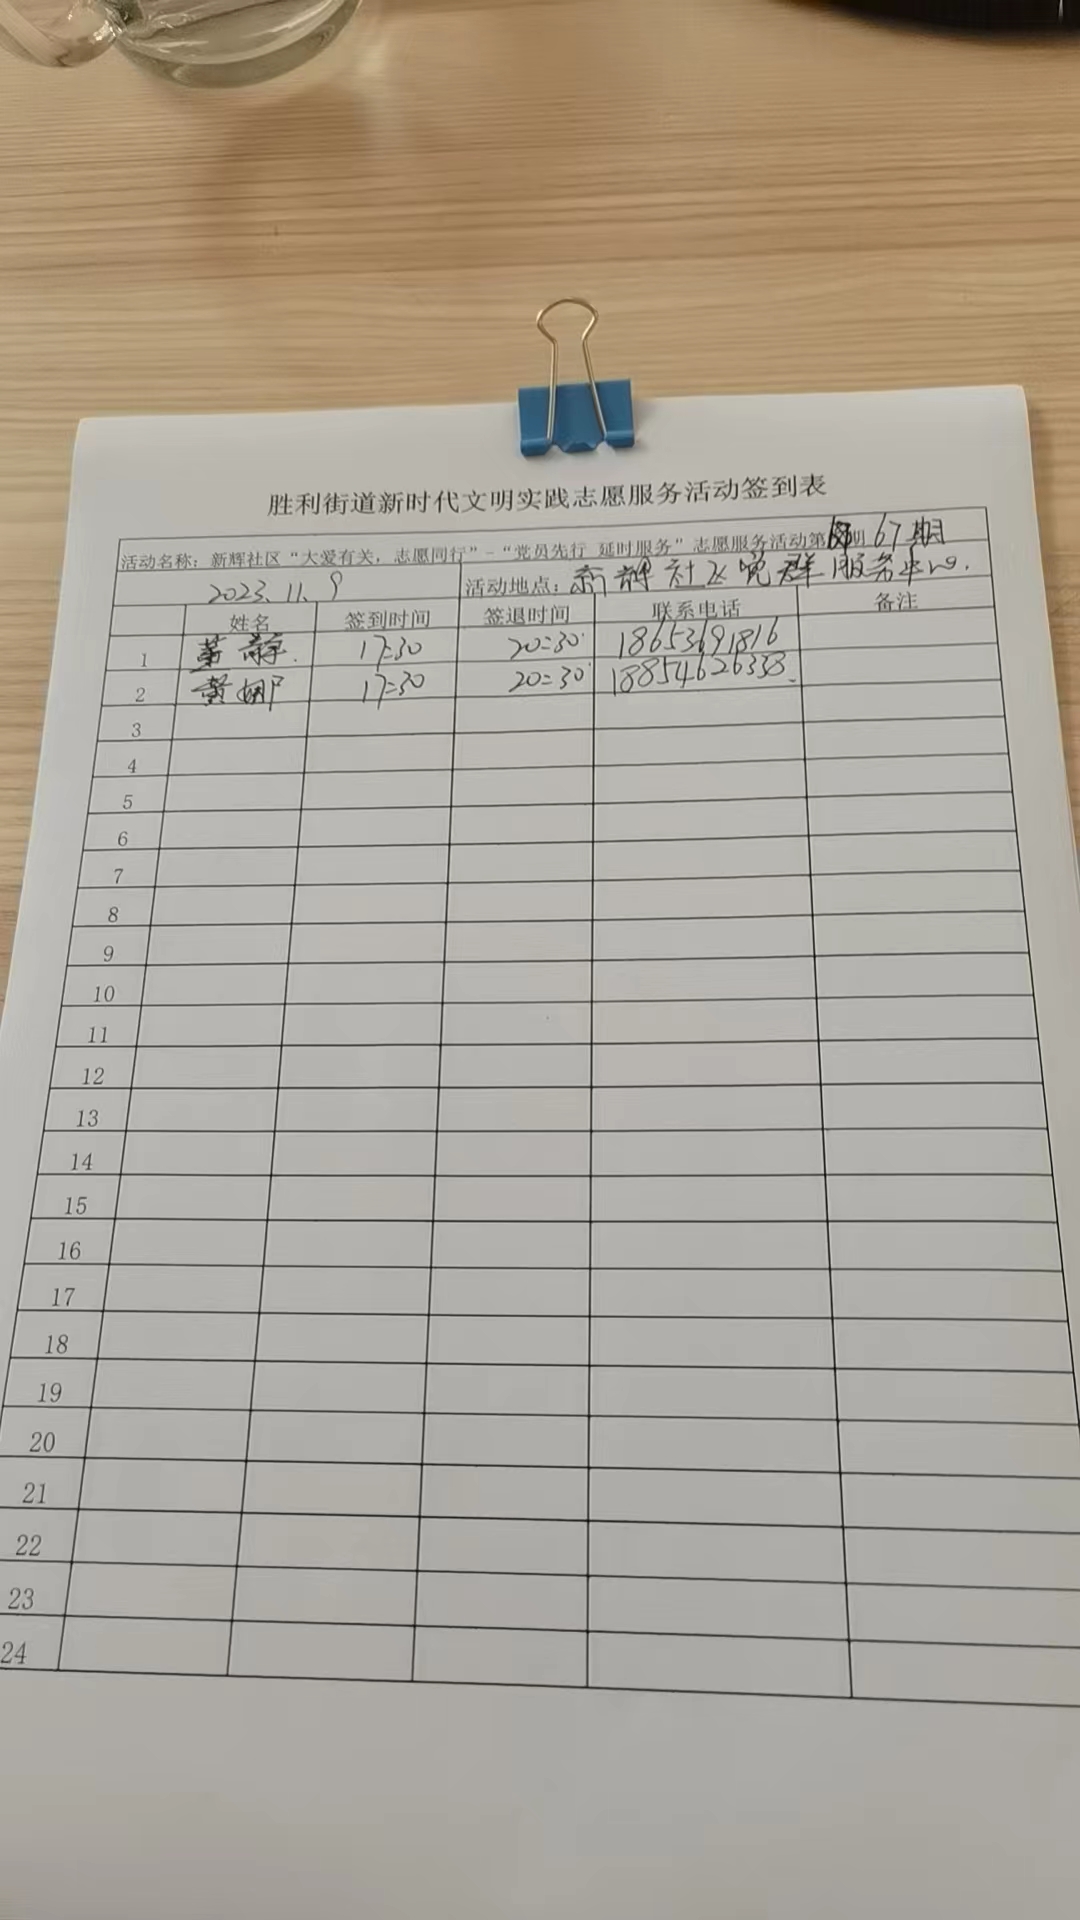 胜利街道新时代文明实践志愿服务活动签到表
活动名称：新辉社区“大爱有关，志愿同行”-“党员先行 延时服务”志愿服务活动第 67期
2023.11.9 活动地点：新辉社区党群服务中心.
姓名 签到时间 签退时间 联系电话 备注
1 董静. 17:30 20:30 18653691816
2 黄娜 17:30 20:30 18854626338
3
4
5
6
7
8
9
10
11
12
13
14
15
16
17
18
19
20
21
22
23
24